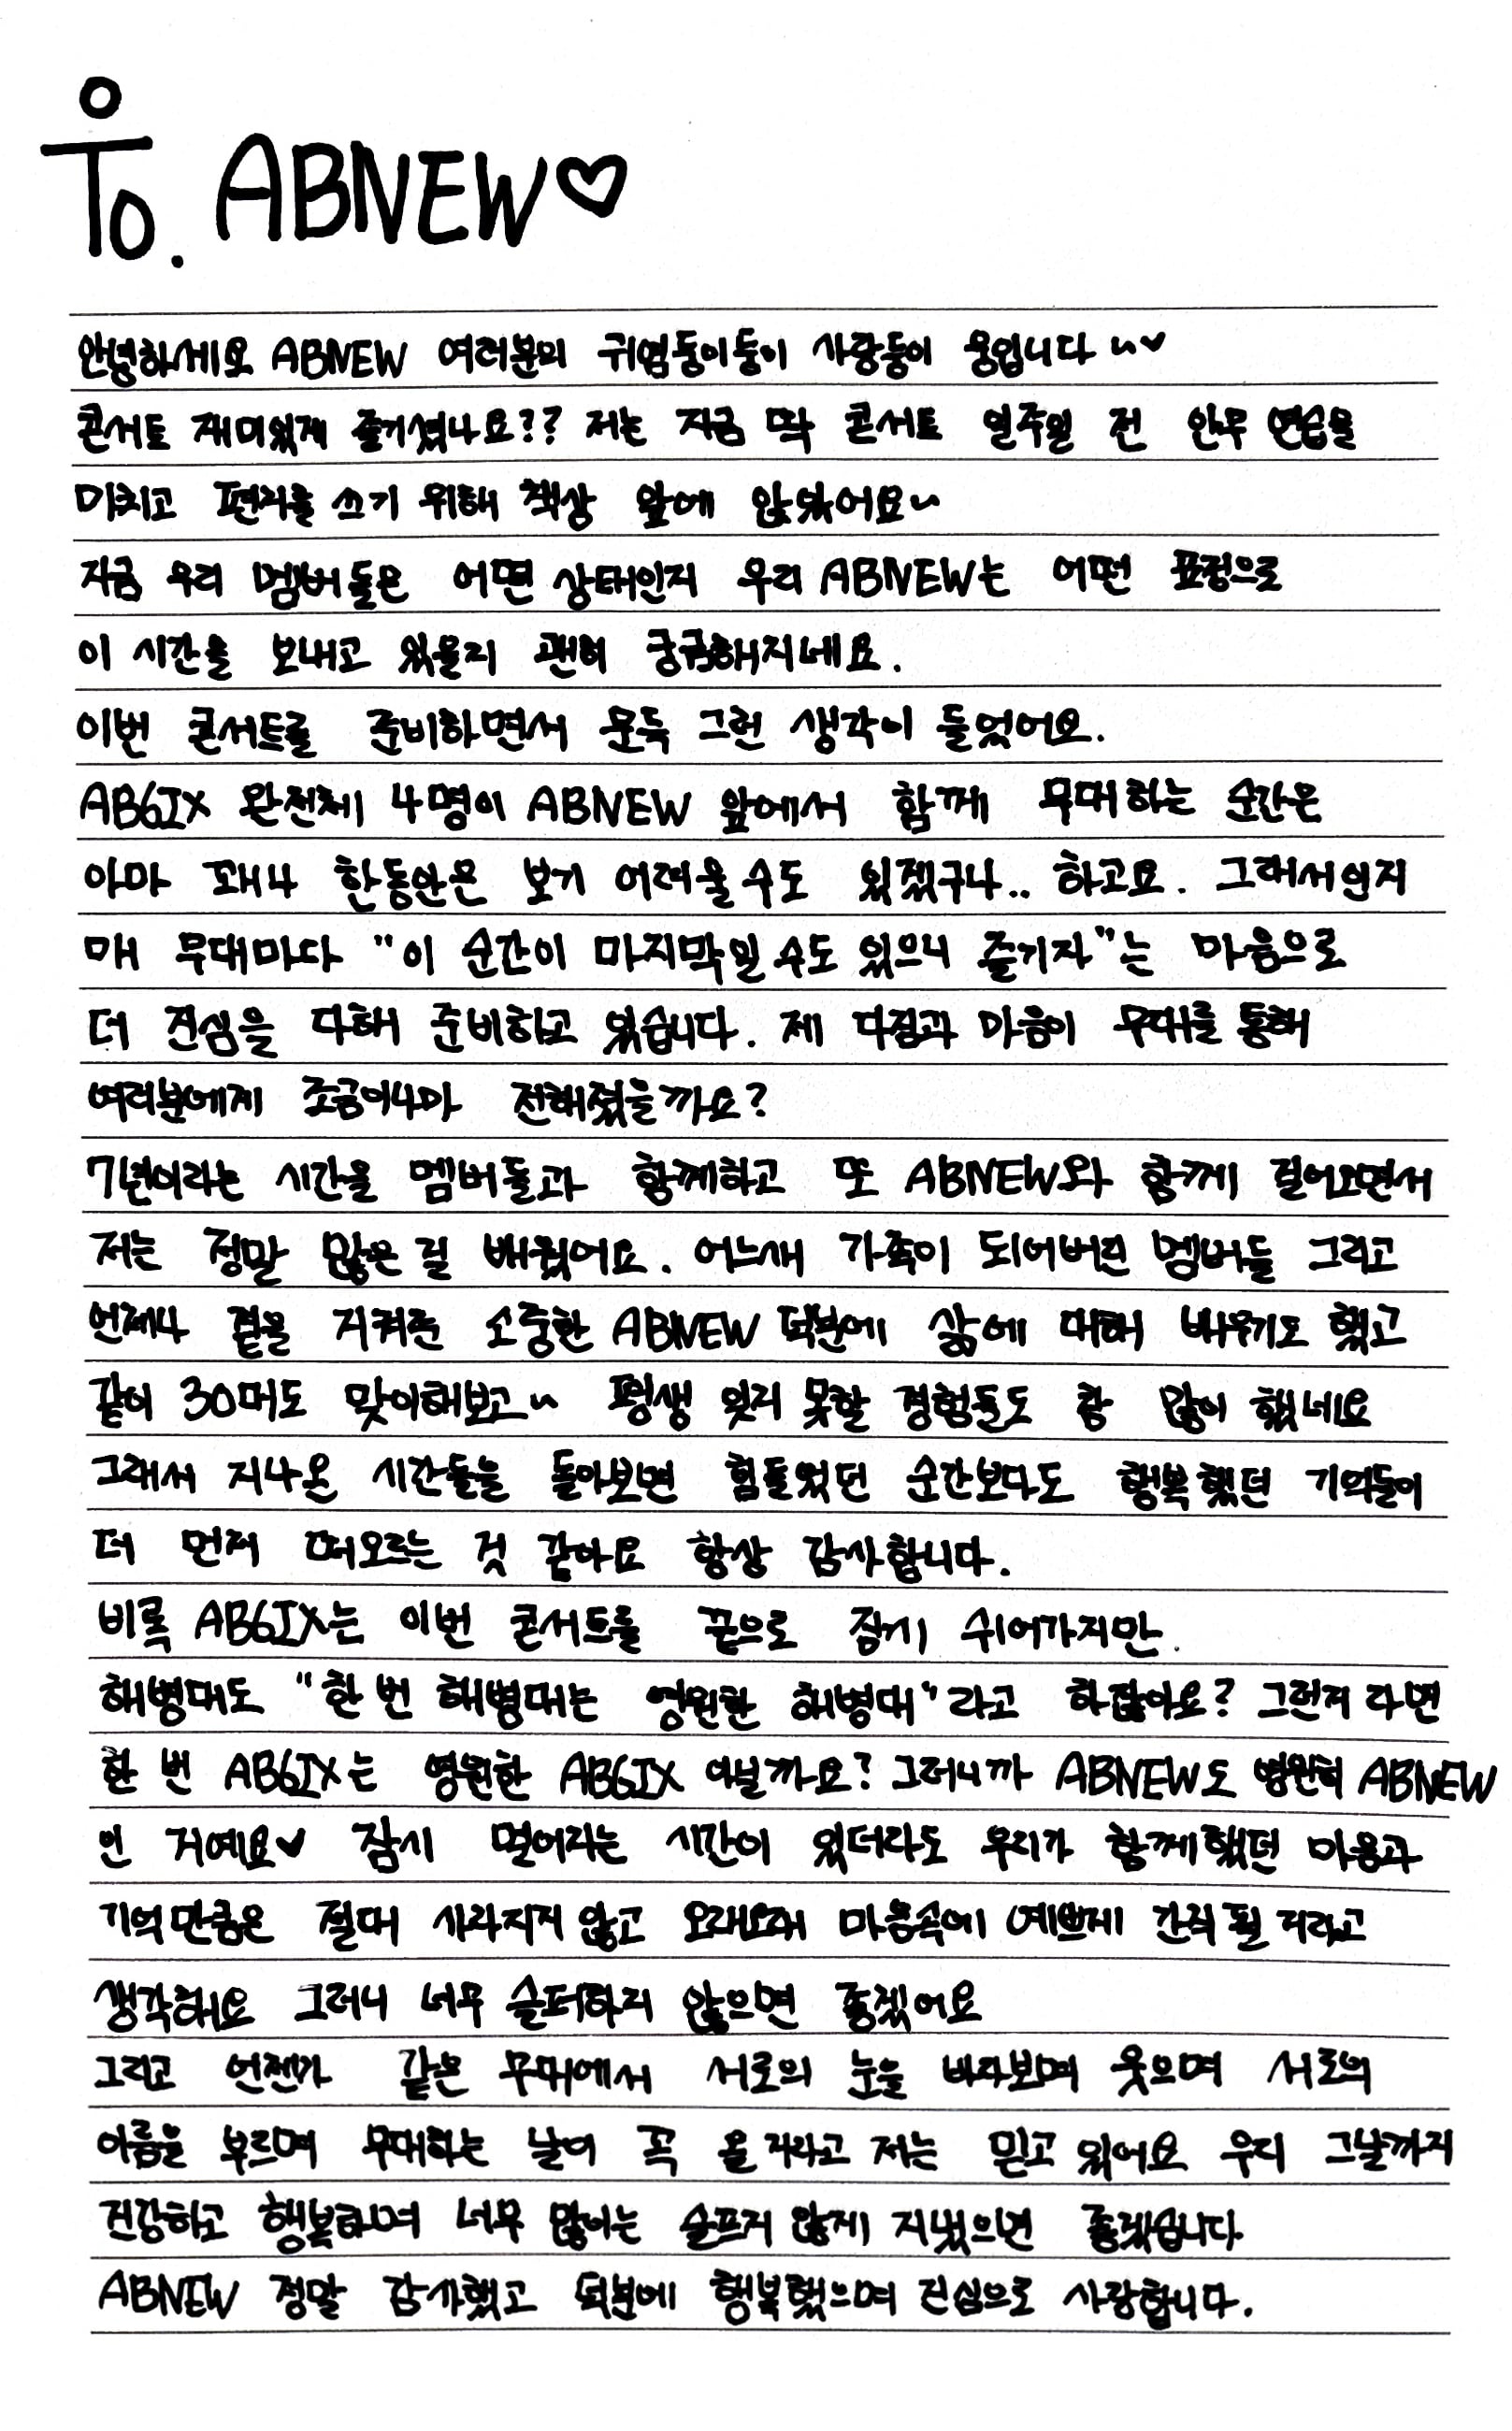 To. ABNEW♡
안녕하세요 ABNEW 여러분의 귀염둥이둥이 사랑둥이 웅입니다~♥
콘서트 재미있게 즐기셨나요?? 저는 지금 딱 콘서트 일주일 전 안무 연습을
마치고 편지를 쓰기 위해 책상 앞에 앉았어요~
지금 우리 멤버들은 어떤 상태인지 우리 ABNEW는 어떤 표정으로
이 시간을 보내고 있을지 괜히 궁금해지네요.
이번 콘서트를 준비하면서 문득 그런 생각이 들었어요.
AB6IX 완전체 4명이 ABNEW 앞에서 함께 무대하는 순간은
아마 꽤나 한동안은 보기 어려울 수도 있겠구나.. 하고요. 그래서인지
매 무대마다 "이 순간이 마지막일 수도 있으니 즐기자"는 마음으로
더 진심을 다해 준비하고 있습니다. 제 다짐과 마음이 무대를 통해
여러분에게 조금이나마 전해졌을까요?
7년이라는 시간을 멤버들과 함께하고 또 ABNEW와 함께 걸어오면서
저는 정말 많은 걸 배웠어요. 어느새 가족이 되어버린 멤버들 그리고
언제나 곁을 지켜준 소중한 ABNEW 덕분에 삶에 대해 배우기도 했고
같이 30대도 맞이해보고~ 평생 잊지 못할 경험들도 참 많이 했네요
그래서 지나온 시간들을 돌아보면 힘들었던 순간보다도 행복했던 기억들이
더 먼저 떠오르는 것 같아요 항상 감사합니다.
비록 AB6IX는 이번 콘서트를 끝으로 잠시 쉬어가지만.
해병대도 "한 번 해병대는 영원한 해병대"라고 하잖아요? 그런거 라면
한 번 AB6IX는 영원한 AB6IX 아닐까요? 그러니까 ABNEW도 영원히 ABNEW
인 거예요♥ 잠시 멀어지는 시간이 있더라도 우리가 함께했던 마음과
기억만큼은 절대 사라지지 않고 오래오래 마음속에 예쁘게 간직될 거라고
생각해요 그러니 너무 슬퍼하지 않으면 좋겠어요
그리고 언젠가 같은 무대에서 서로의 눈을 바라보며 웃으며 서로의
이름을 부르며 무대하는 날이 꼭 올 거라고 저는 믿고 있어요 우리 그날까지
건강하고 행복하며 너무 많이는 슬프지 않게 지냈으면 좋겠습니다
ABNEW 정말 감사했고 덕분에 행복했으며 진심으로 사랑합니다.